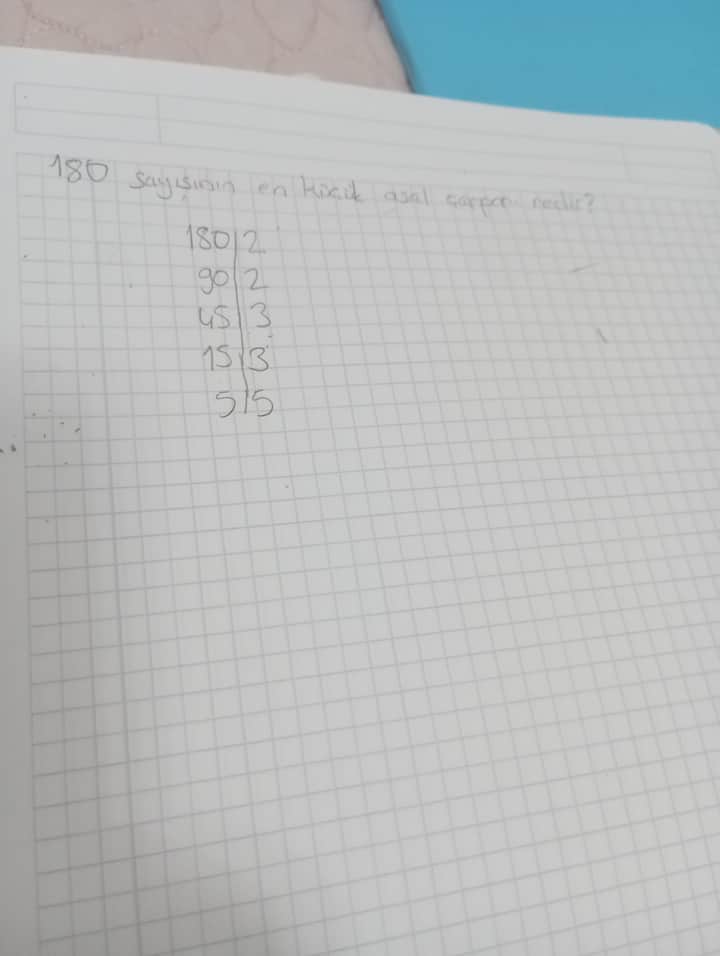 180 sayısının en küçük asal çarpanı nedir?
180|2
90|2
45|3
15|3
5|5